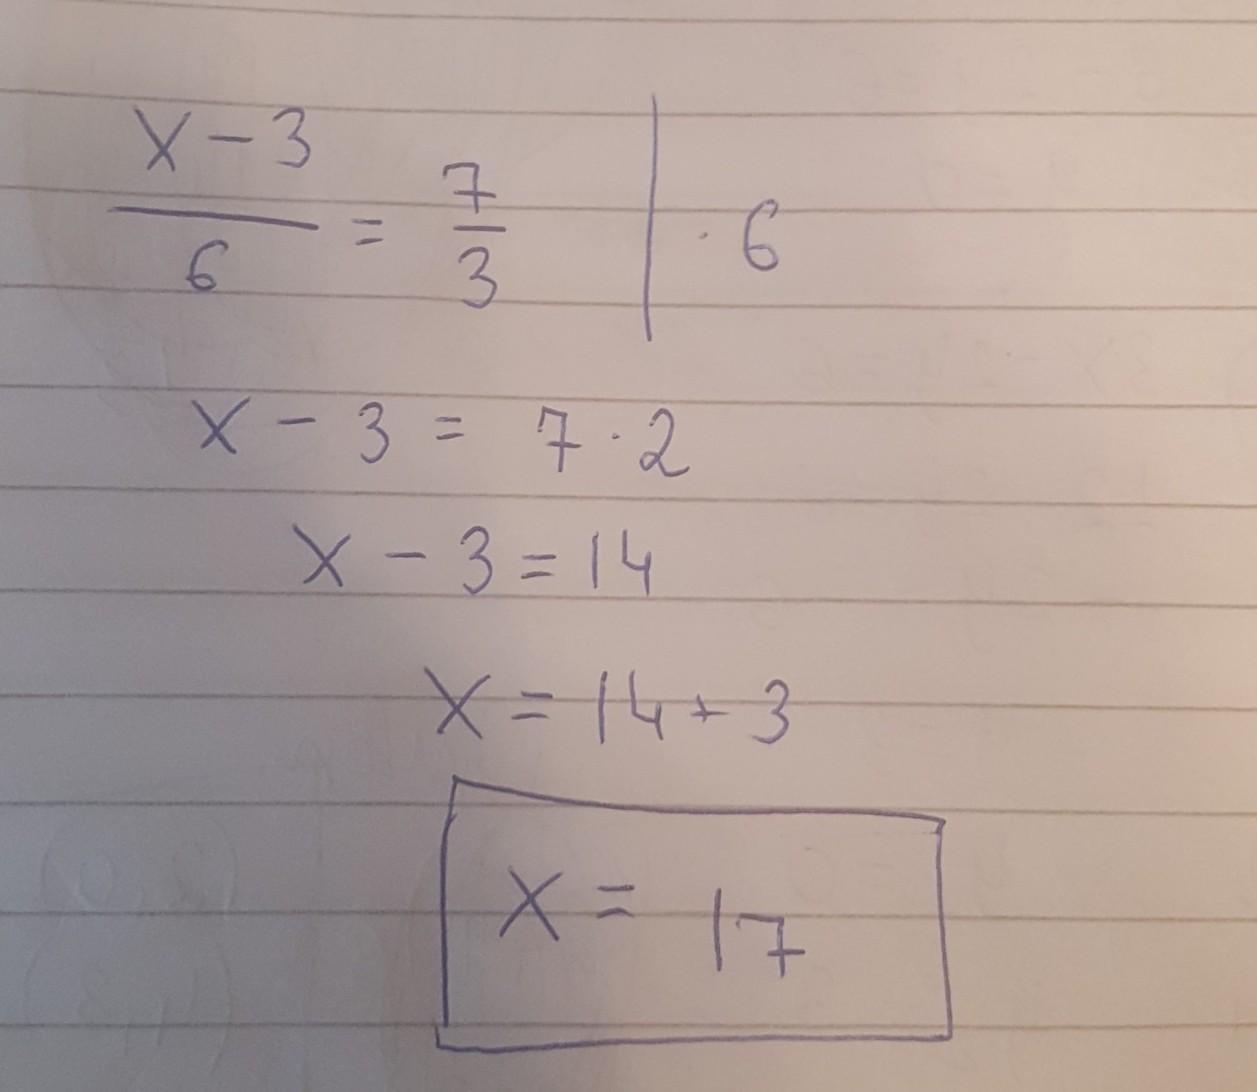 x - 3 / 6 = 7 / 3 | · 6
x - 3 = 7 · 2
x - 3 = 14
x = 14 + 3
x = 17